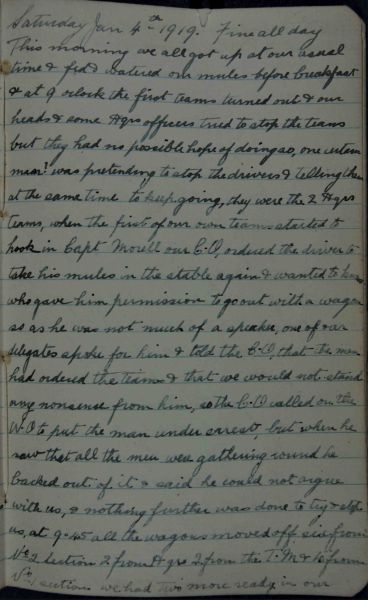 Saturday Jan 4th 1919. Fine all day
This morning we all got up at our usual
time & fed & watered our mules before breakfast
& at 9 oclock the first teams turned out & our
heads & some Hqrs officers tried to stop the teams
but they had no possible hope of doing so, one certain
was pretending to stop the drivers & telling them
at the same time to keep going, they were the 2 Hqrs
teams, when the first of our own teams started to
hook in Capt Morell our C.O, ordered the driver to
take his mules in the stable again & wanted to know
who gave him permission to go out with a wagon
so as he was not much of a speaker, one of our
delegates spoke for him & told the C.O, that the men
had ordered the teams & that we would not stand
any nonsense from him, so the C.O called on the
W.O to put the man under arrest, but when he
saw that all the men were gathering round he
backed out of it & said he could not argue
with us, & nothing further was done to try & stop
us, at 9.45 all the wagons moved off six from
No 2 section 2 from Hqrs 2 from the T.M & 10 from
No 1 section we had two more ready in our